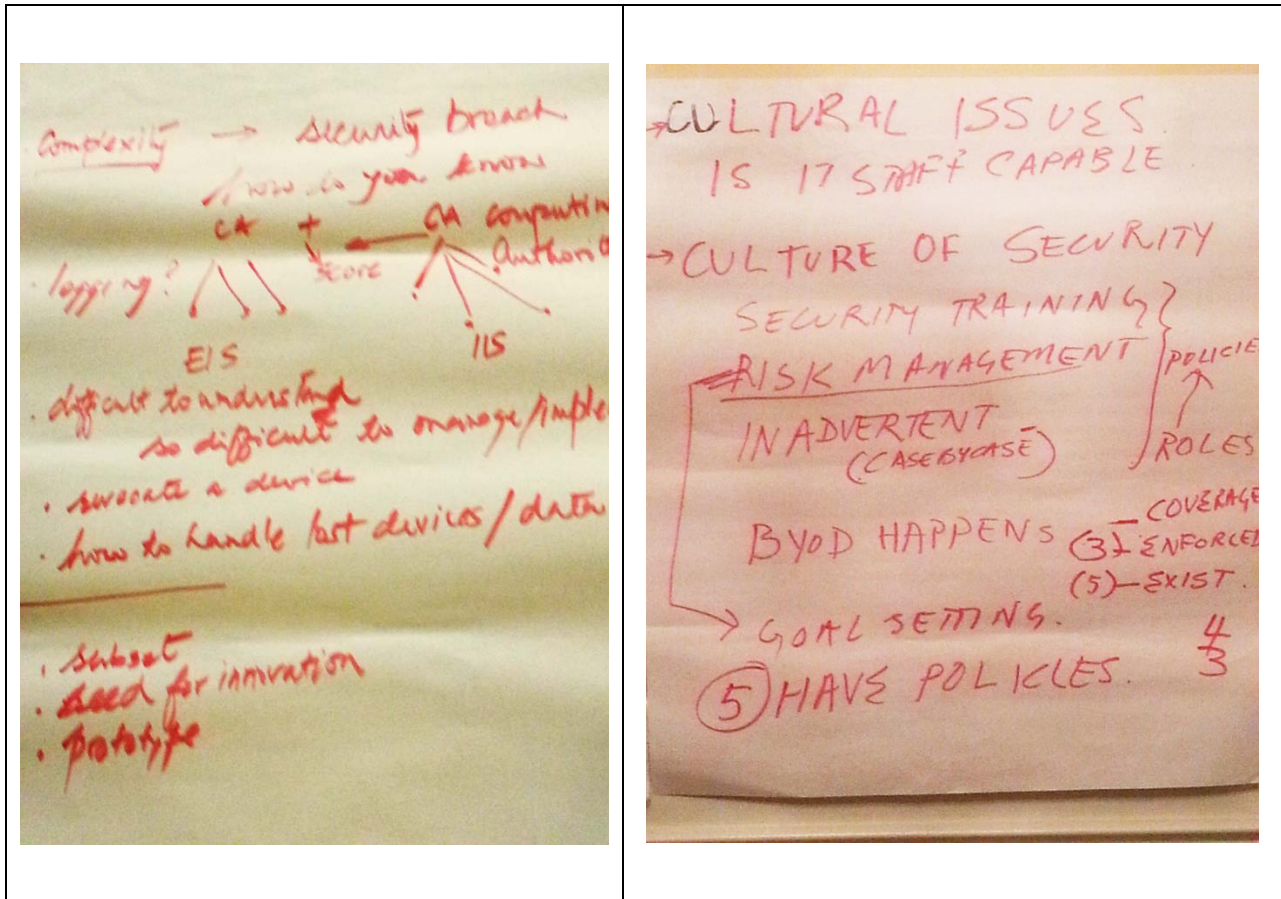 Complexity → security breach
how do you know
CA + CA computin
score Authori
· logging?
EIS IIS
· difficult to understand
so difficult to manage/imple
· revocate a device
· how to handle lost devices/data
· subset
· need for innovation
· prototype
→CULTURAL ISSUES
IS IT STAFF CAPABLE
→CULTURE OF SECURITY
SECURITY TRAINING
RISK MANAGEMENT
POLICIE
INADVERTENT
(CASE BY CASE)
ROLES
BYOD HAPPENS
— COVERAGE
(3) – ENFORCED
(5) – EXIST.
GOAL SETTING.
4
3
5 HAVE POLICIES.